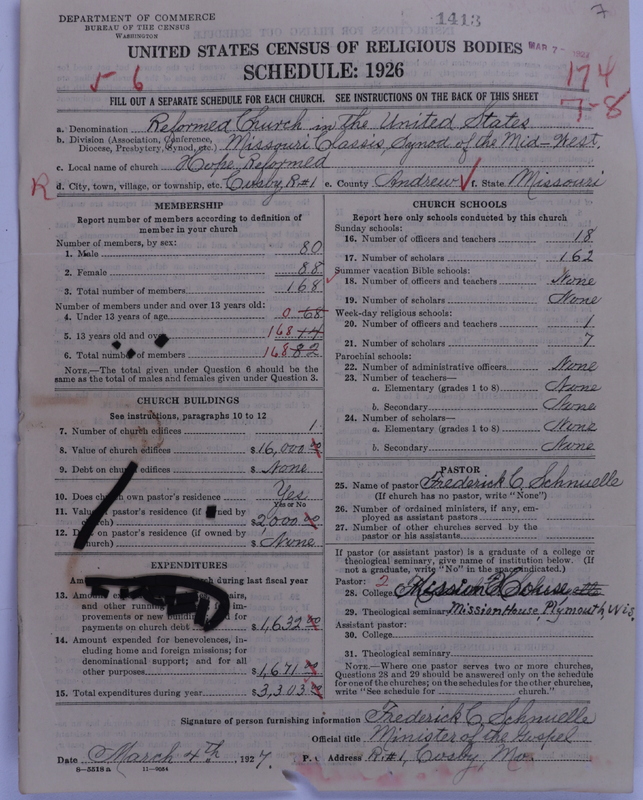 DEPARTMENT OF COMMERCE
BUREAU OF THE CENSUS
WASHINGTON
1413
7
UNITED STATES CENSUS OF RELIGIOUS BODIES
MAR 7
SCHEDULE: 1926
174
7-8
FILL OUT A SEPARATE SCHEDULE FOR EACH CHURCH. SEE INSTRUCTIONS ON THE BACK OF THIS SHEET
a. Denomination Reformed Church in the United States
b. Division (Association, Conference, Diocese, Presbytery, Synod, etc.) Missouri Classis, Synod of the Mid-West,
c. Local name of church Hope Reformed
R d. City, town, village, or township, etc. Cosby, R#1 e. County Andrew f. State Missouri
MEMBERSHIP
Report number of members according to definition of
member in your church
Number of members, by sex:
1. Male 80
2. Female 88
3. Total number of members 168
Number of members under and over 13 years old:
4. Under 13 years of age 0 68
5. 13 years old and over 168 14
6. Total number of members 168 82
NOTE.—The total given under Question 6 should be
same as the total of males and females given under Question 3.
CHURCH BUILDINGS
See instructions, paragraphs 10 to 12
7. Number of church edifices 1
8. Value of church edifices $16,000.00
9. Debt on church edifices $None
10. Does church own pastor's residence Yes
Yes or No
11. Value of pastor's residence (if owned by
church) $2,000.00
12. Debt on pastor's residence (if owned by
church) $None
EXPENDITURES
church during last fiscal year
13. Amount
and other running
improvements or new for
payments on church debt $1,632.00
14. Amount expended for benevolences, in-
cluding home and foreign missions; for
denominational support; and for all
other purposes $1,671.00
15. Total expenditures during year $3,303.00
CHURCH SCHOOLS
Report here only schools conducted by this church
Sunday schools:
16. Number of officers and teachers 18
17. Number of scholars 162
Summer vacation Bible schools:
18. Number of officers and teachers None
19. Number of scholars None
Week-day religious schools:
20. Number of officers and teachers 1
21. Number of scholars 7
Parochial schools:
22. Number of administrative officers None
23. Number of teachers—
a. Elementary (grades 1 to 8) None
b. Secondary None
24. Number of scholars—
a. Elementary (grades 1 to 8) None
b. Secondary None
PASTOR
25. Name of pastor Frederick C. Schnuelle
(If church has no pastor, write "None")
26. Number of ordained ministers, if any, em-
ployed as assistant pastors
27. Number of other churches served by the
pastor or his assistants
If pastor (or assistant pastor) is a graduate of a college or
theological seminary, give name of institution below. (If
not a graduate, write "No" in the space indicated.)
Pastor: 2
28. College Mission House
29. Theological seminary Mission House, Plymouth, Wis.
Assistant pastor:
30. College
31. Theological seminary
NOTE.—Where one pastor serves two or more churches,
Questions 28 and 29 should be answered only on the schedule
for one of the churches; on the schedules for the other churches,
write "See schedule for church."
Signature of person furnishing information Frederick C. Schnuelle
Official title Minister of the Gospel
Date March 4th, 1927 P. O. Address R.#1, Cosby, Mo.
8-5518a 11-9084